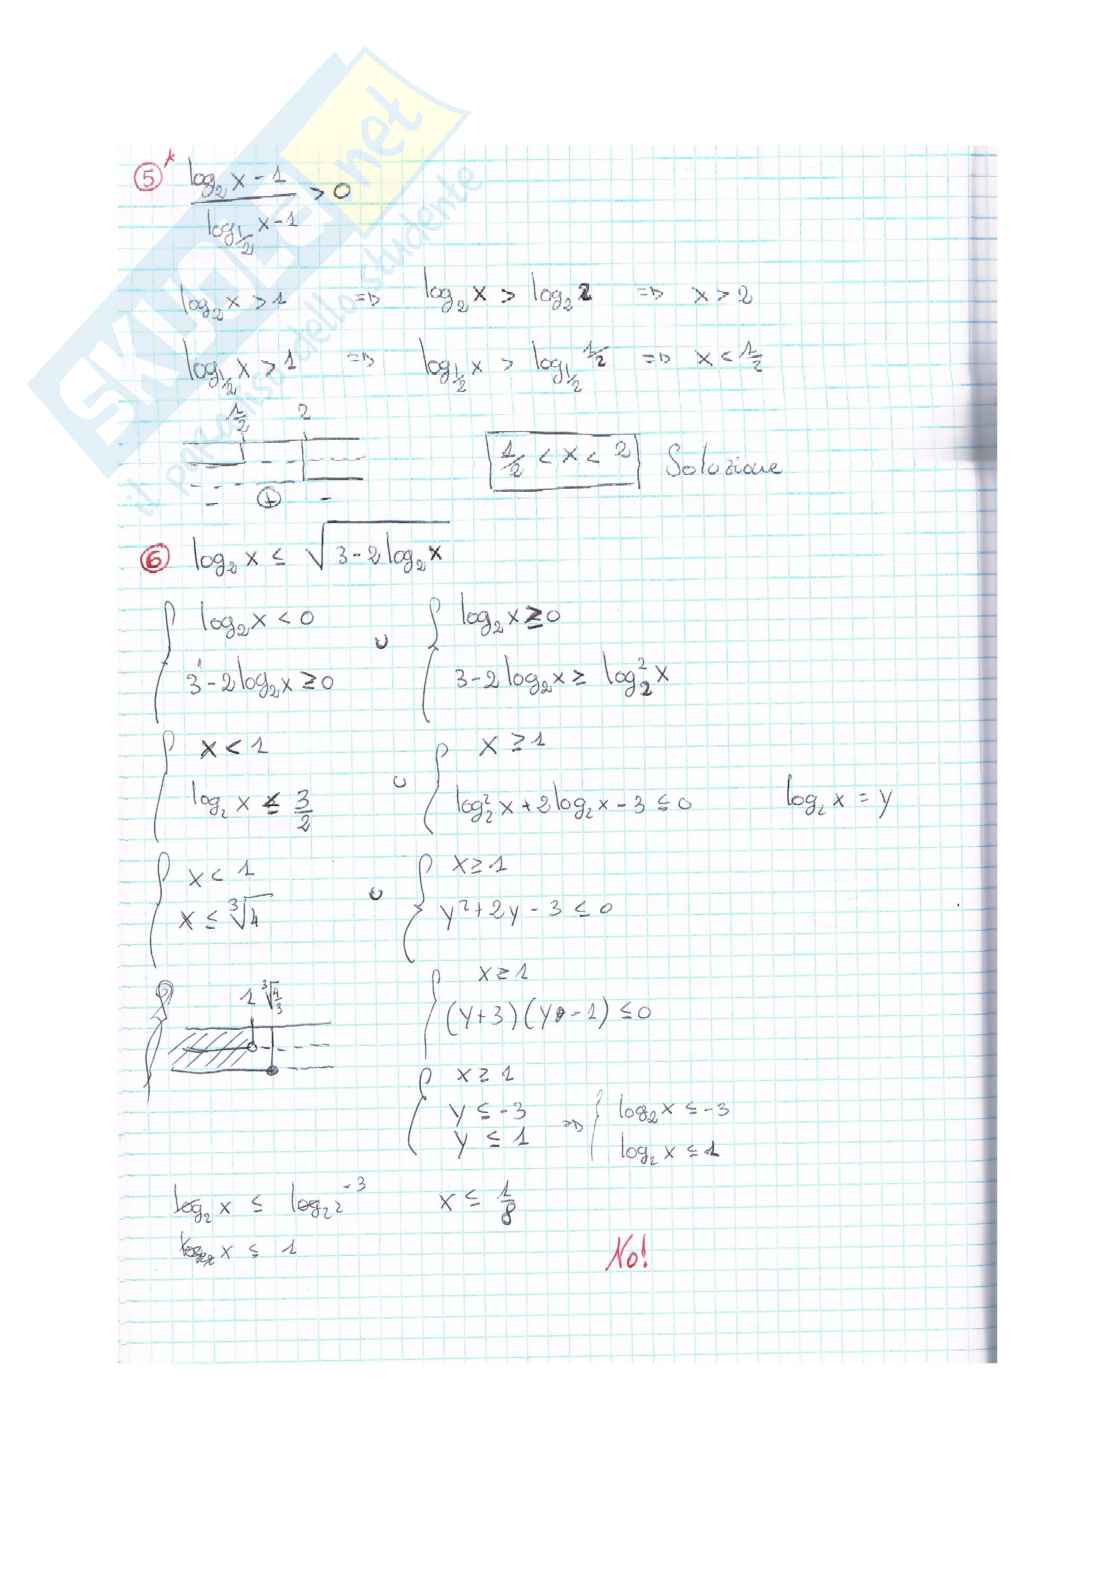 SKUOLA.net
il paradiso dello studente
5* (log₂ x - 1) / (log_{1/2} x - 1) > 0
log₂ x > 1 => log₂ x > log₂ 2 => x > 2
log_{1/2} x > 1 => log_{1/2} x > log_{1/2} 1/2 => x < 1/2
1/2 2
- + -
1/2 < x < 2 Soluzione
6 log₂ x ≤ √(3 - 2 log₂ x)
{ log₂ x < 0 ∪ { log₂ x ≥ 0
3 - 2 log₂ x ≥ 0 3 - 2 log₂ x ≥ log₂² x
{ x < 1 ∪ { x ≥ 1
log₂ x ≤ 3/2 log₂² x + 2 log₂ x - 3 ≤ 0 log₂ x = y
{ x < 1 ∪ { x ≥ 1
x ≤ ³√4 y² + 2y - 3 ≤ 0
{ x ≥ 1
1 (y + 3)(y - 1) ≤ 0
{ x ≥ 1
y ≤ -3 => { log₂ x ≤ -3
y ≤ 1 log₂ x ≤ 1
log₂ x ≤ log₂ 2⁻³ x ≤ 1/8
x ≤ 1 No!